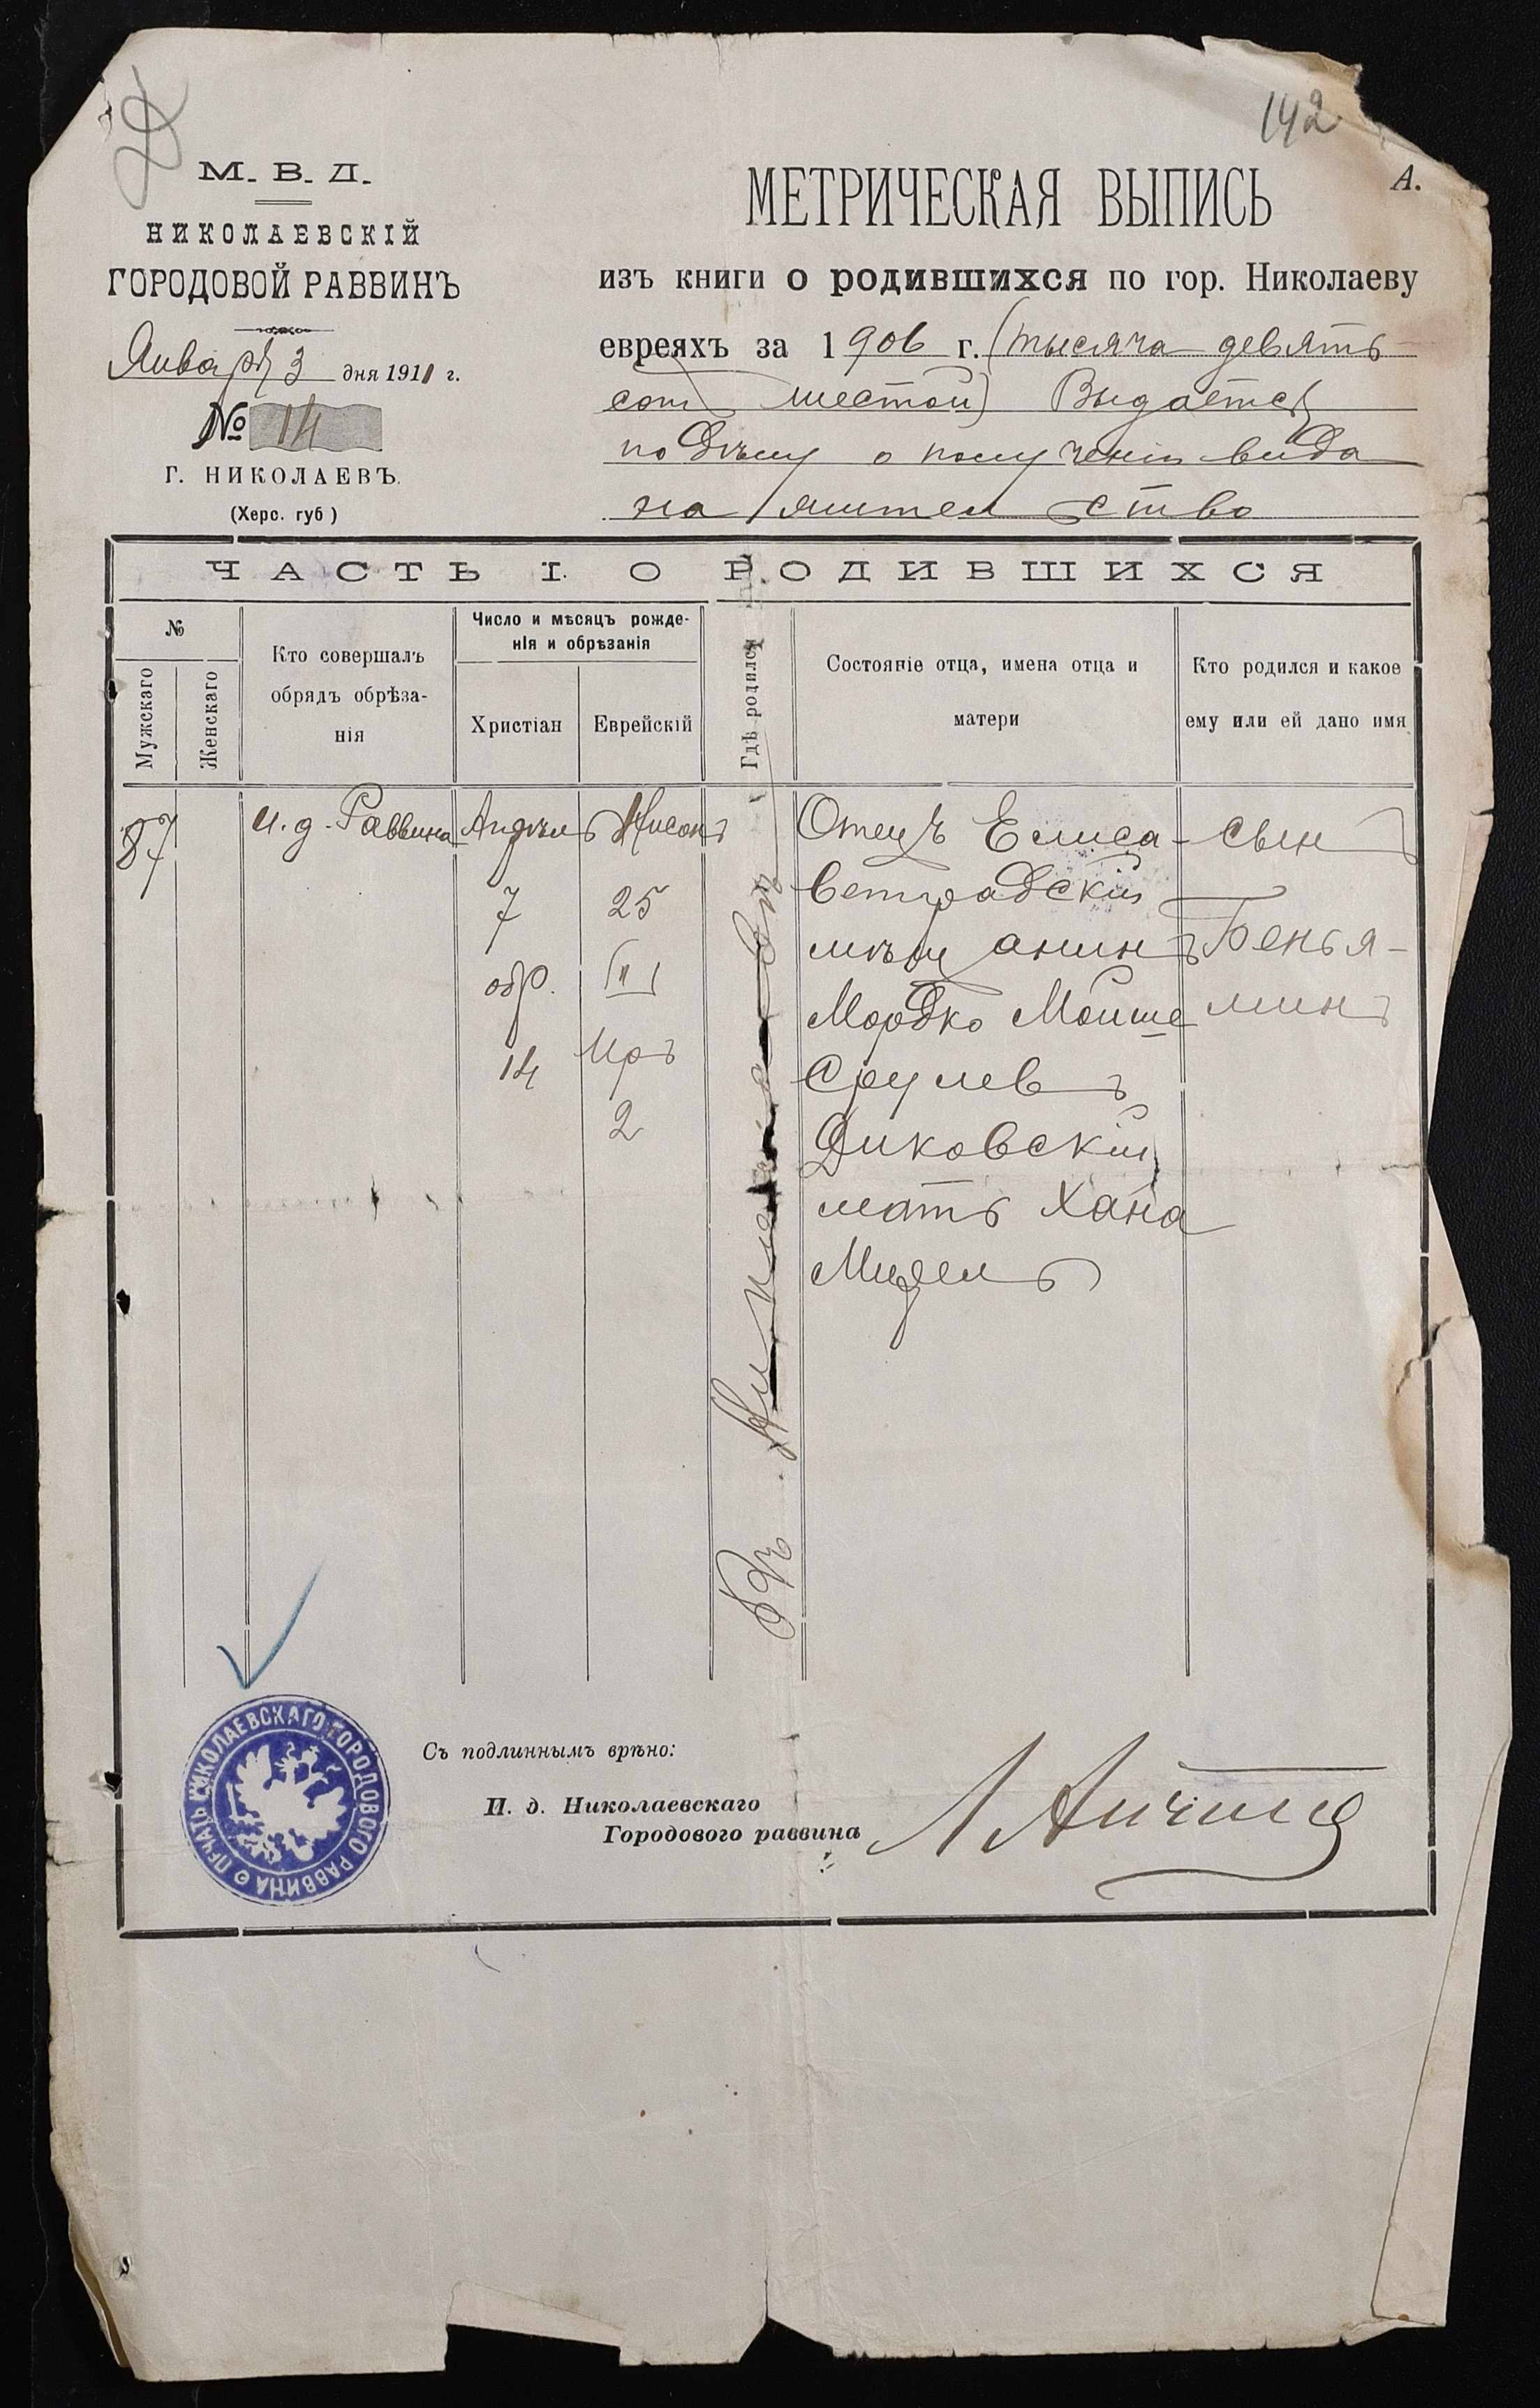 142
А.
М. В. Д.
НИКОЛАЕВСКІЙ
ГОРОДОВОЙ РАВВИНЪ
Января 3 дня 1911 г.
№ 14
Г. НИКОЛАЕВЪ.
(Херс. губ)
МЕТРИЧЕСКАЯ ВЫПИСЬ
изъ книги о родившихся по гор. Николаеву
евреяхъ за 1906 г. (тысяча девять
сот шестой) Выдается
по дѣлу о полученіи вида
на жительство
ЧАСТЬ I. О РОДИВШИХСЯ
№
Мужскаго
Женскаго
Кто совершалъ
обрядъ обрѣза-
нія
Число и мѣсяцъ рожде-
нія и обрѣзанія
Христіан
Еврейскій
Гдѣ родился
Состояніе отца, имена отца и
матери
Кто родился и какое
ему или ей дано имя
87
И. д. Раввина
Апрѣль
7
обр.
14
Нисонъ
25
Иръ
2
Въ г. Николаевѣ
Отецъ Елиса-
ветградскій
мѣщанинъ
Мордко Моише
Срулевъ
Диковскій,
мать Хана
Миндель
сынъ
Бенья-
минъ
ПЕЧАТЬ НИКОЛАЕВСКАГО ГОРОДОВОГО РАВВИНА
Съ подлиннымъ врѣно:
И. д. Николаевскаго
Городового раввина